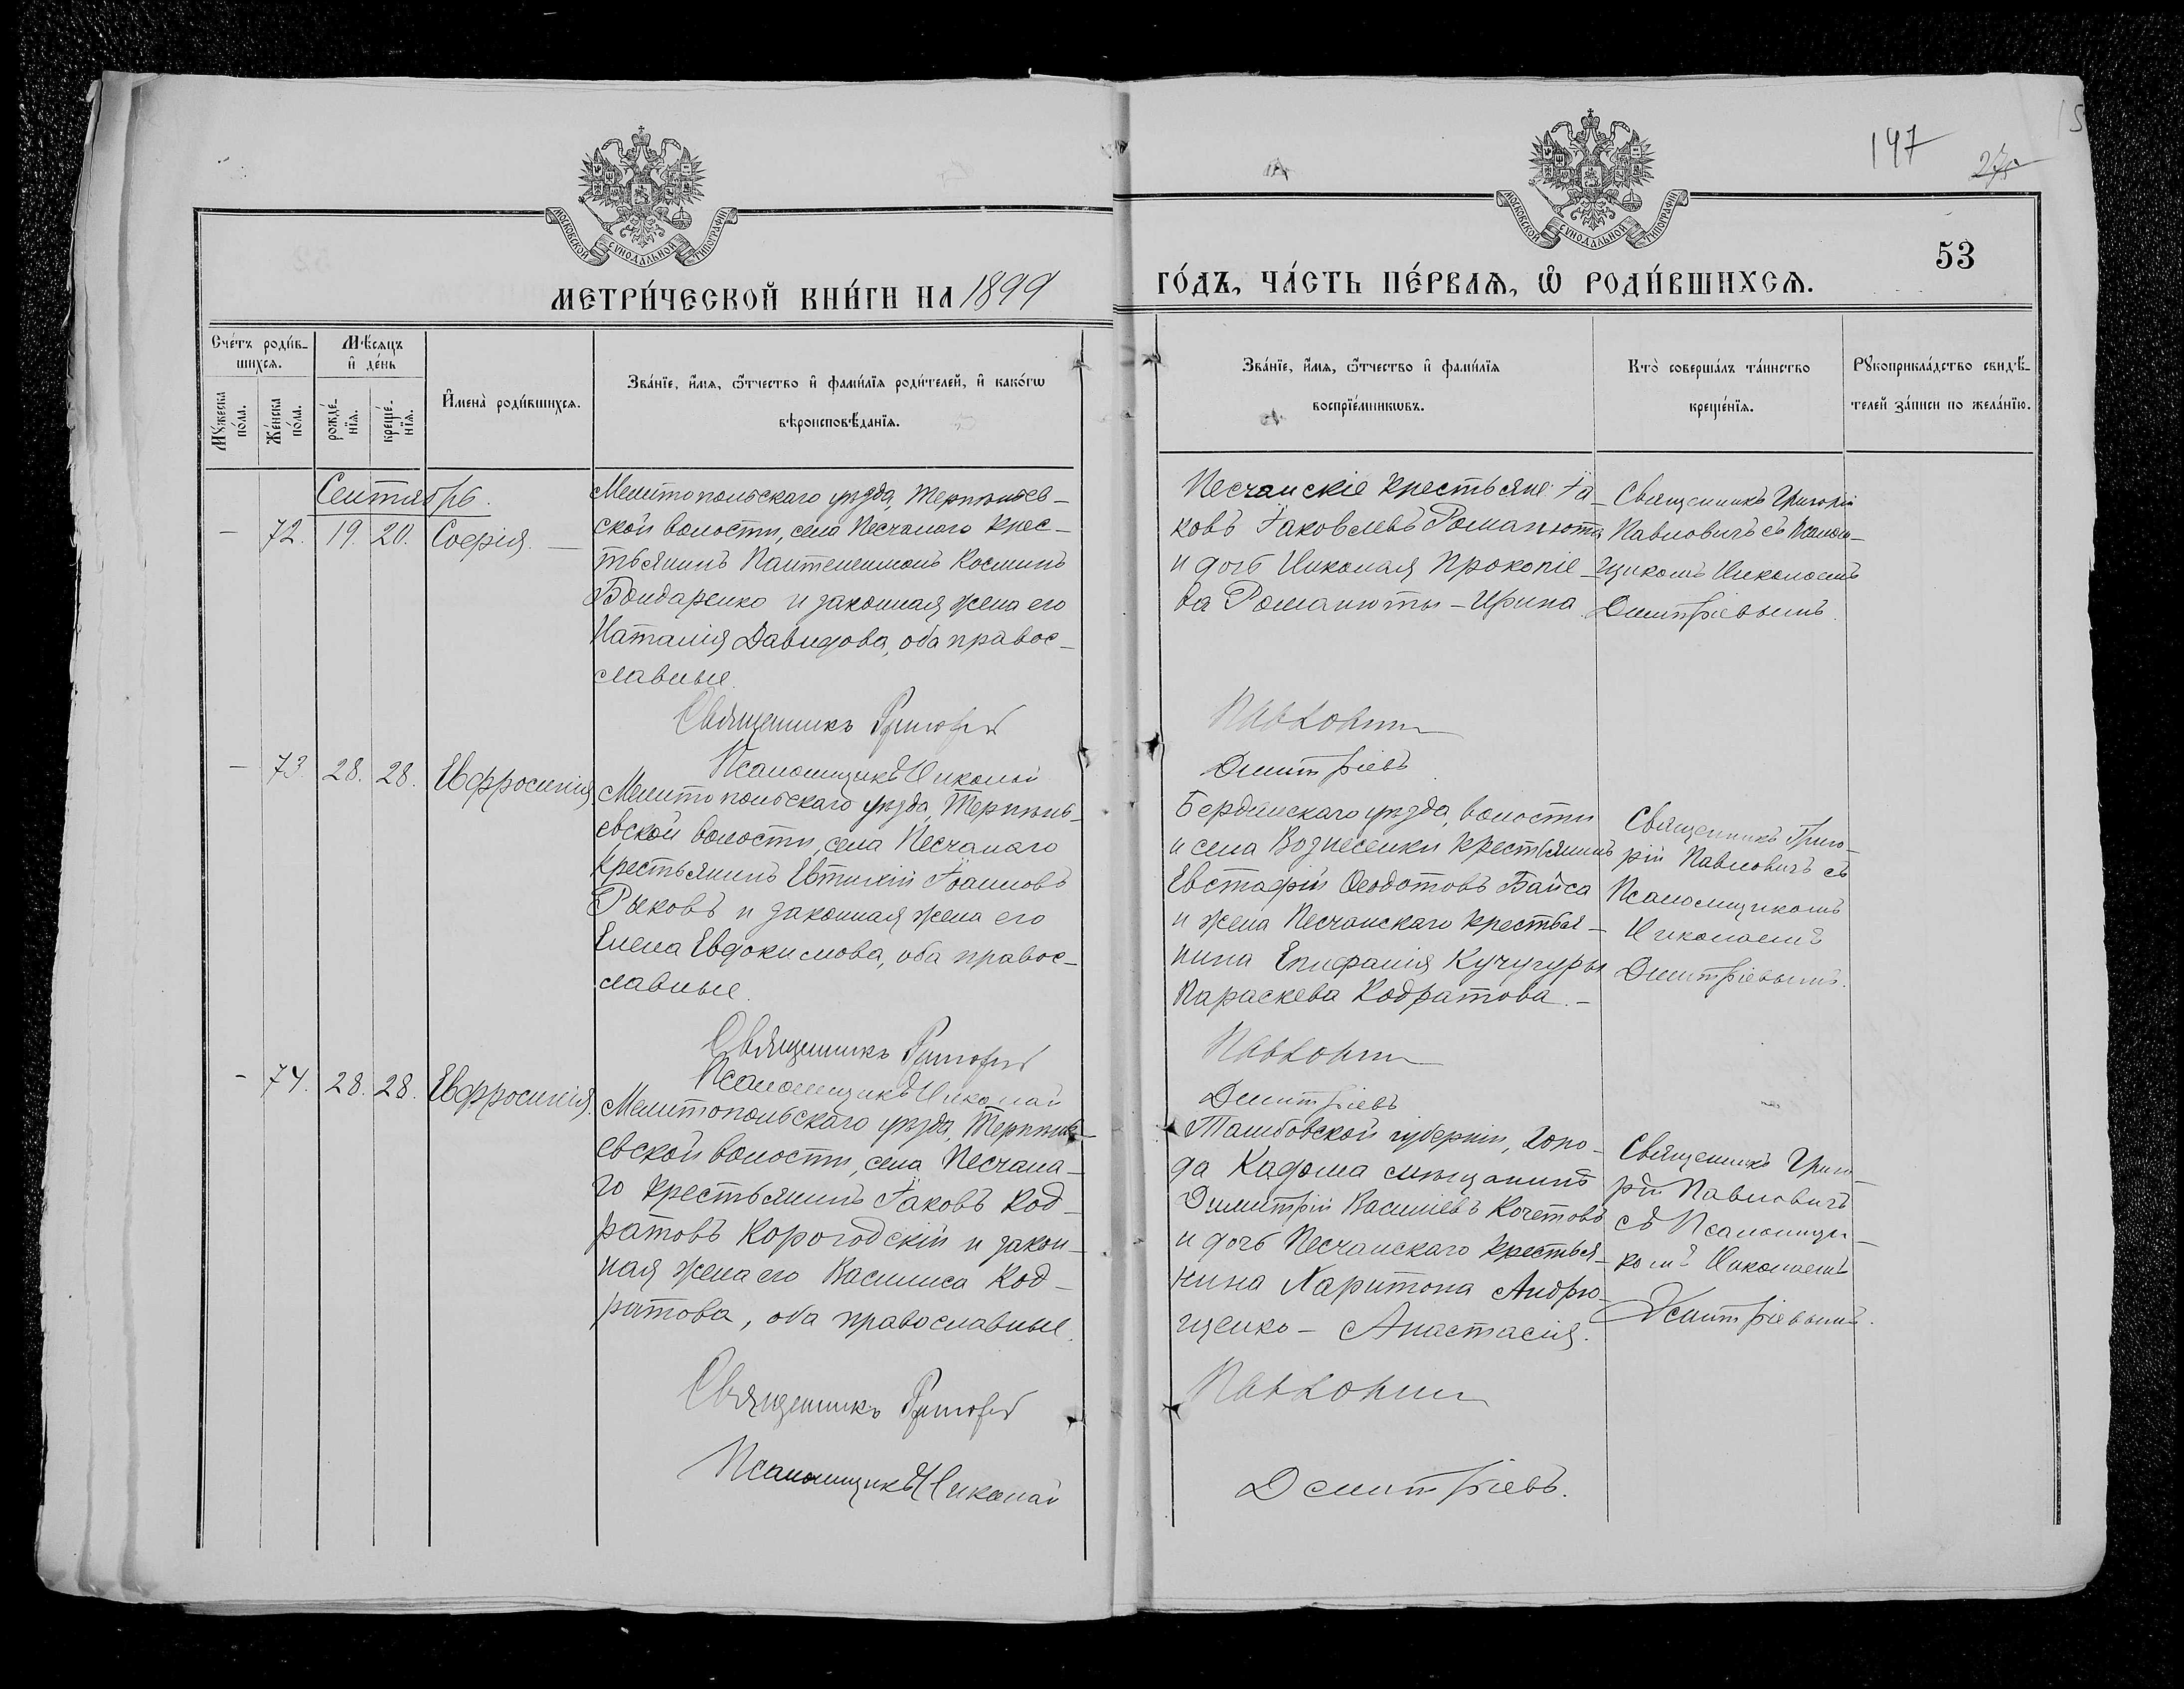 147
27
53
МОСКОВСКОЙ СѴНОДАЛЬНОЙ ТИПОГРАФІИ
МОСКОВСКОЙ СѴНОДАЛЬНОЙ ТИПОГРАФІИ
МЕТРИ́ЧЕСКОЙ КНИ́ГИ НА 1899
ГО́ДЪ, ЧА́СТЬ ПЕ́РВАѦ, Ѡ҆ РОДИ́ВШИХСѦ.
Сче́тъ роди́в-
шихся.
Мѣ́сяцъ
и҆ де́нь
Мꙋ́жеска
по́ла.
Же́нска
по́ла.
рожде́-
нїя.
креще́-
нїя.
И҆мена̀ роди́вшихся.
Зва́нїе, и҆́мя, ѻ҆́тчество и҆ фами́лїя роди́телей, и҆ како́гѡ
вѣроисповѣ́данїя.
Зва́нїе, и҆́мя, ѻ҆́тчество и҆ фами́лїя
воспрїе́мникѡвъ.
Кто̀ соверша́лъ та́инство
креще́нїя.
Рꙋкоприкла́дство свидѣ́-
телей за́писи по жела́нїю.
Сентябрь.
– 72. 19. 20. Софія. –
Мелитопольскаго уѣзда, Терпѣньев-
ской волости, села Песчанаго крес-
тьянинъ Пантелеимонъ Косминъ
Бондаренко и законная жена его
Наталія Давидова, оба правос-
лавные.
Священникъ Григорій
Псаломщикъ Николай
Песчанскіе крестьяне: Іа-
ковъ Іаковлевъ Романюта
и дочь Николая Прокопіе-
ва Романюты – Ирина
Павловичъ
Дмитріевъ
Священникъ Григорій
Павловичъ съ Псалом-
щикомъ Николаемъ
Дмитріевымъ.
– 73. 28. 28. Евфросинія
Мелитопольскаго уѣзда, Терпѣнь-
евской волости, села Песчанаго
крестьянинъ Евтихій Іоанновъ
Рыковъ и законная жена его
Елена Евдокимова, оба правос-
лавные.
Священникъ Григорій
Псаломщикъ Николай
Бердянскаго уѣзда, волости
и села Вознесенки крестьянинъ
Евстафій Ѳеодотовъ Байса
и жена Песчанскаго крестья-
нина Епифанія Кучугуры
Параскева Кодратова. –
Павловичъ
Дмитріевъ
Священникъ Григо-
рій Павловичъ съ
Псаломщикомъ
Николаемъ
Дмитріевымъ.
– 74. 28. 28. Евфросинія.
Мелитопольскаго уѣзда, Терпѣнь-
евской волости, села Песчана-
го крестьянинъ Іаковъ Код-
ратовъ Корогодскій и закон-
ная жена его Василиса Код-
ратова, оба православные.
Священникъ Григорій
Псаломщикъ Николай
Тамбовской губерніи, горо-
да Кадома мѣщанинъ
Димитрій Василіевъ Кочетовъ
и дочь Песчанскаго крестья-
нина Харитона Андрю-
щенко – Анастасія.
Павловичъ
Дмитріевъ.
Священникъ Григо-
рій Павловичъ
съ Псаломщи-
комъ Николаемъ
Дмитріевымъ.